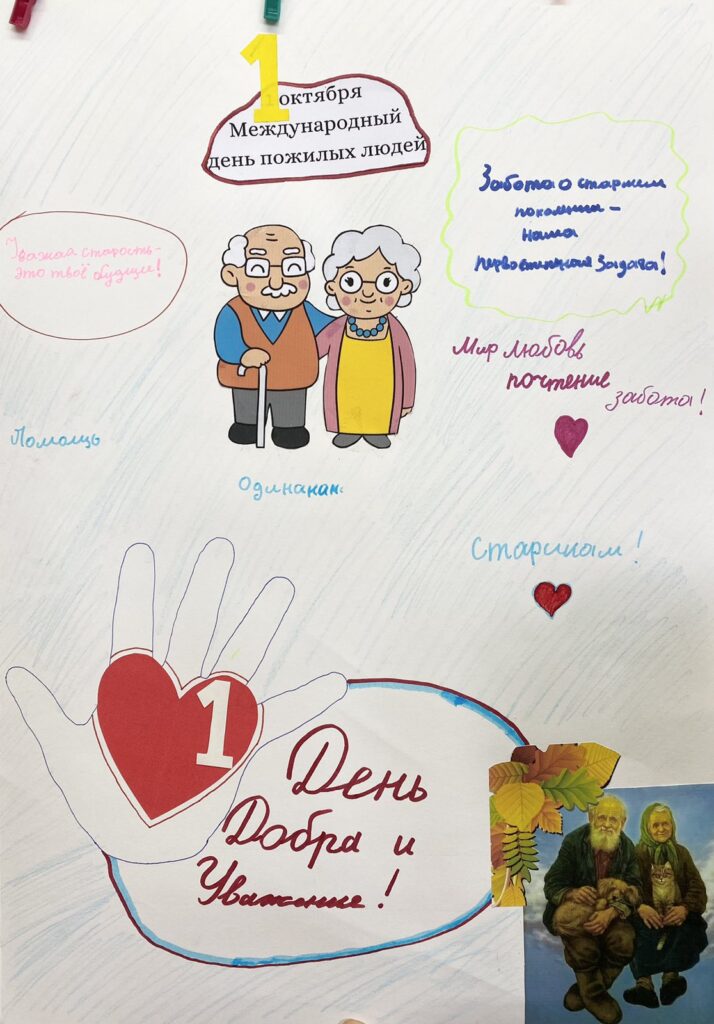 1
1 октября
Международный
день пожилых людей
Забота о старшем
поколении –
наша
первостепенная задача!
Уважая старость –
это твоё будущие!
Мир любовь
почтение
забота!
Помощь
Одинакам
Старикам!
1
День
Добра и
Уважение!